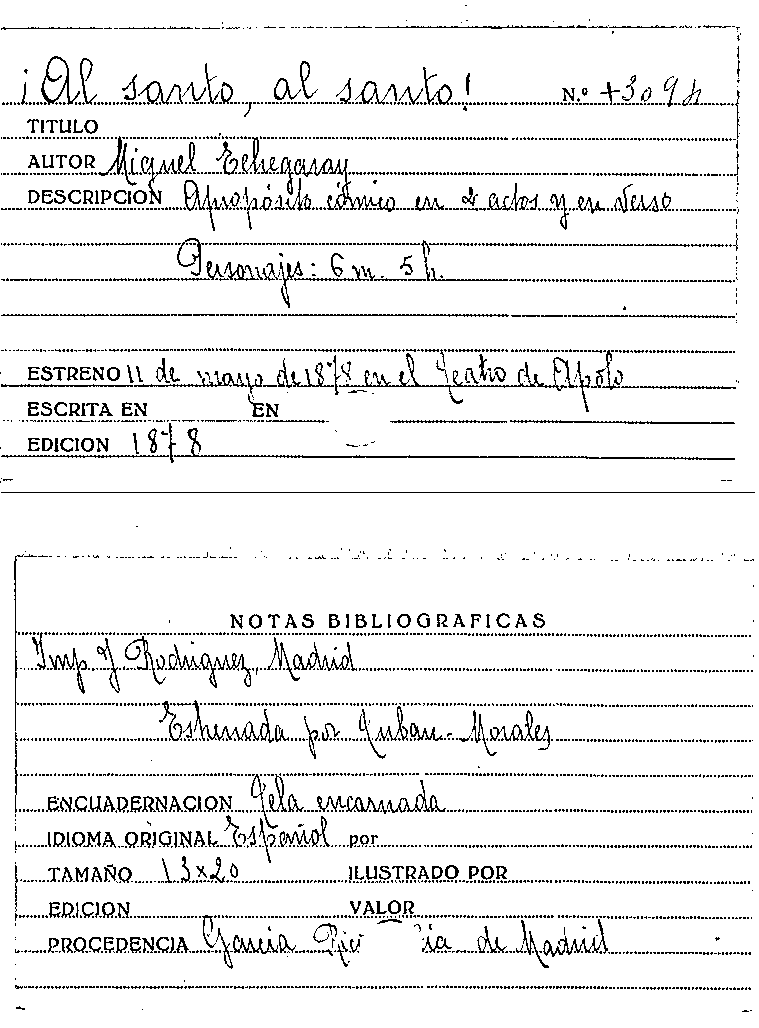 ¡Al santo, al santo! N.º +309h
TITULO
AUTOR Miguel Echegaray
DESCRIPCION Apropósito cómico en 2 actos y en verso
Personajes: 6 m. 5 h.
ESTRENO 11 de mayo de 1878 en el Teatro de Apolo
ESCRITA EN EN
EDICION 1878
NOTAS BIBLIOGRAFICAS
Imp J Rodriguez, Madrid
Estrenada por Morales
ENCUADERNACION Tela encarnada
IDIOMA ORIGINAL Español por
TAMAÑO 13x20 ILUSTRADO POR
EDICION VALOR
PROCEDENCIA Garcia Rico de Madrid